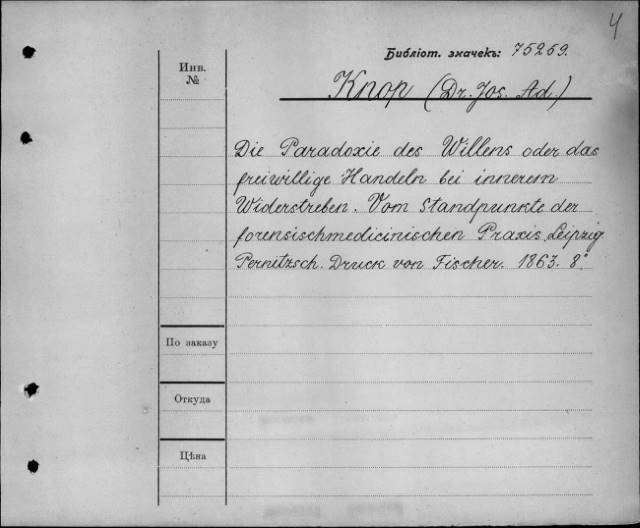 4
Библіот. значекъ: 75259.
Инв.
№
Knop (Dr. Jos. Ad.)
Die Paradoxie des Willens oder das
freiwillige Handeln bei innerem
Widerstreben. Vom Standpunkte der
forensischmedicinischen Praxis. Leipzig
Pernitzsch. Druck von Fischer. 1863. 8°.
По заказу
Откуда
Цѣна